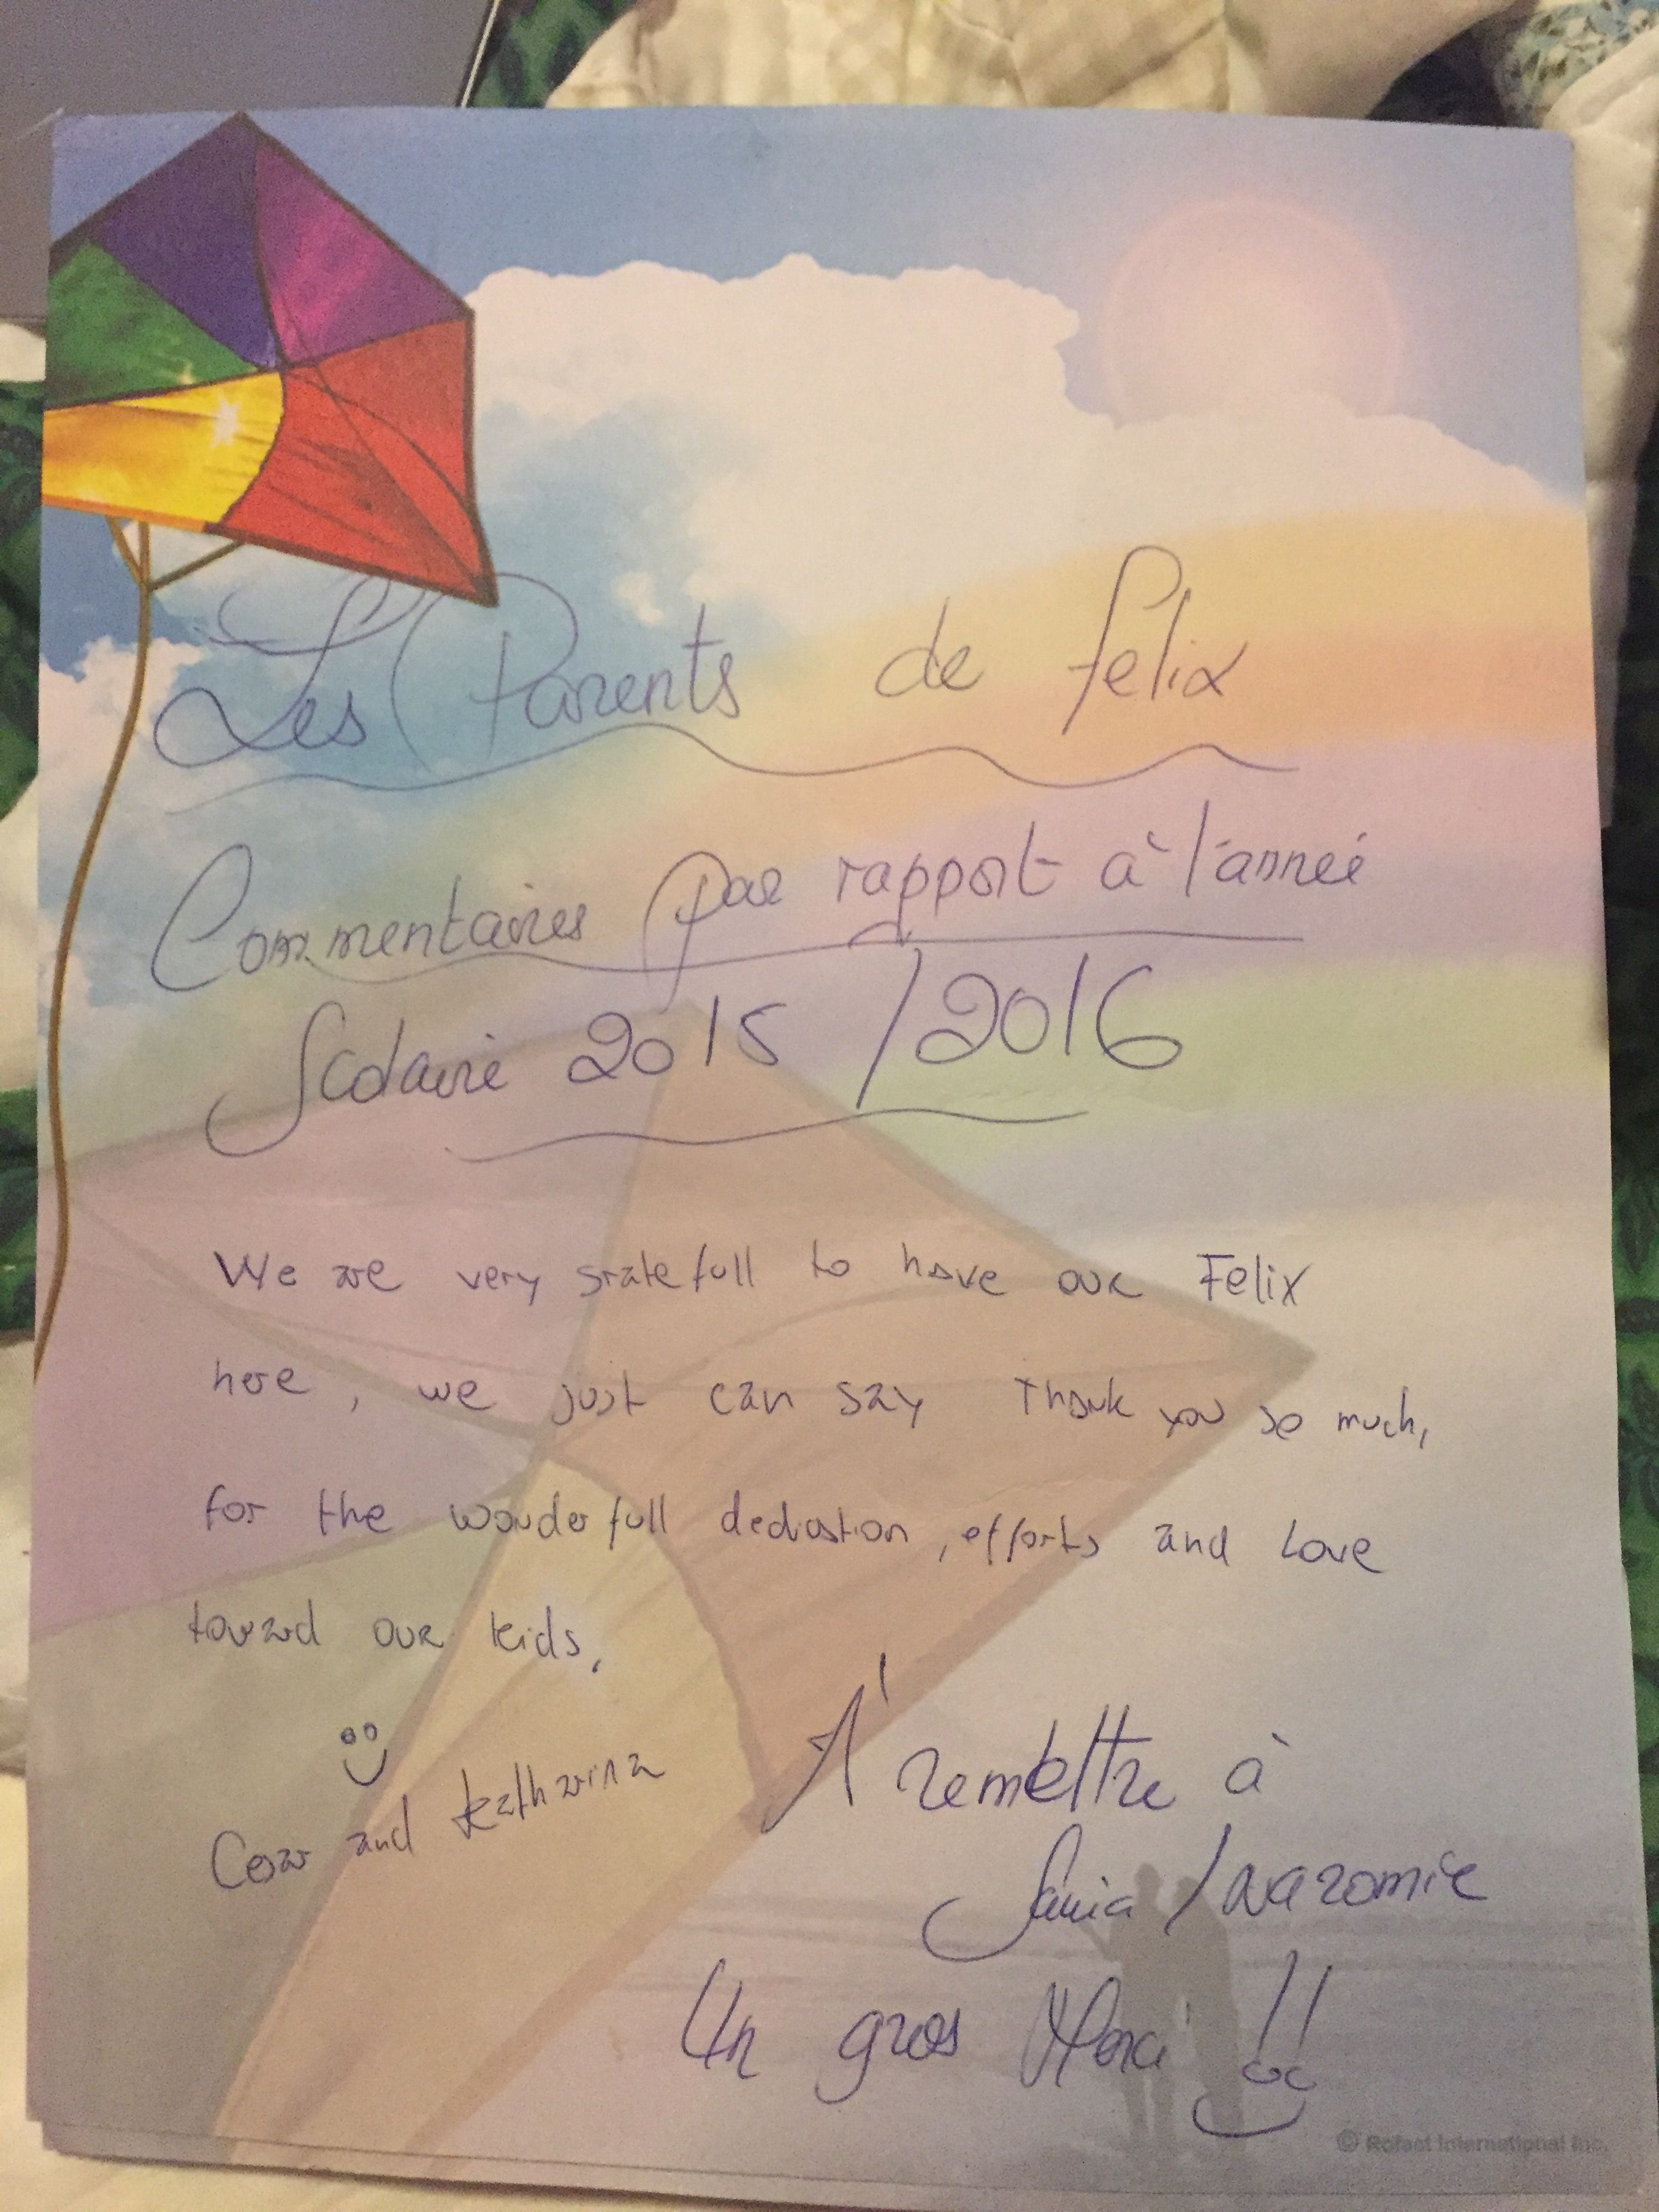 Les Parents de felix
Commentaires par rapport à l'anneé
Scolaire 2015 / 2016
We are very gratefull to have our Felix
here, we just can say Thank you so much,
for the wonderfull dedication, efforts and Love
toward our kids,
and Katharina
À remettre à
Sania / Nazomie
Un gros Merci !!
© Rofact International Inc.